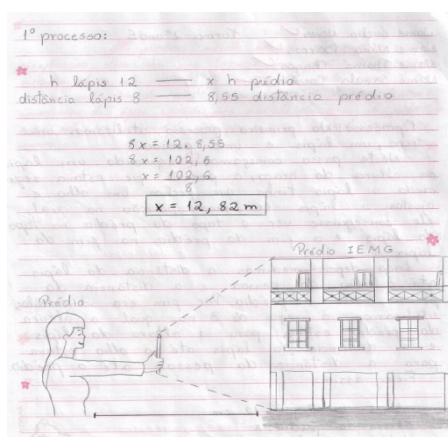 1º processo:
h lápis 12 — x h prédio
distância lápis 8 — 8,55 distância prédio
8x = 12 . 8,55
8x = 102,6
x = 102,6
8
x = 12,82 m
Prédio IEMG
Prédio